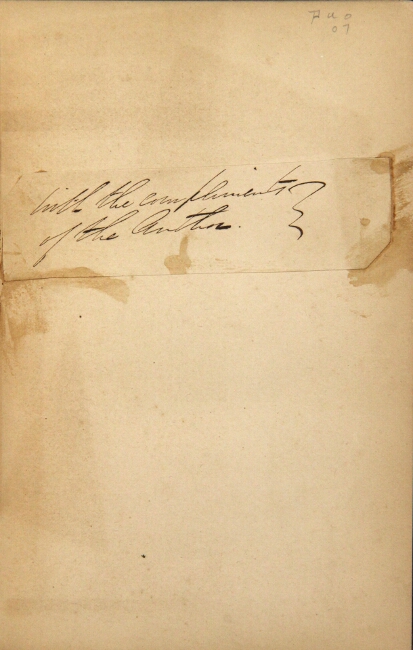 With the compliments
of the Author.